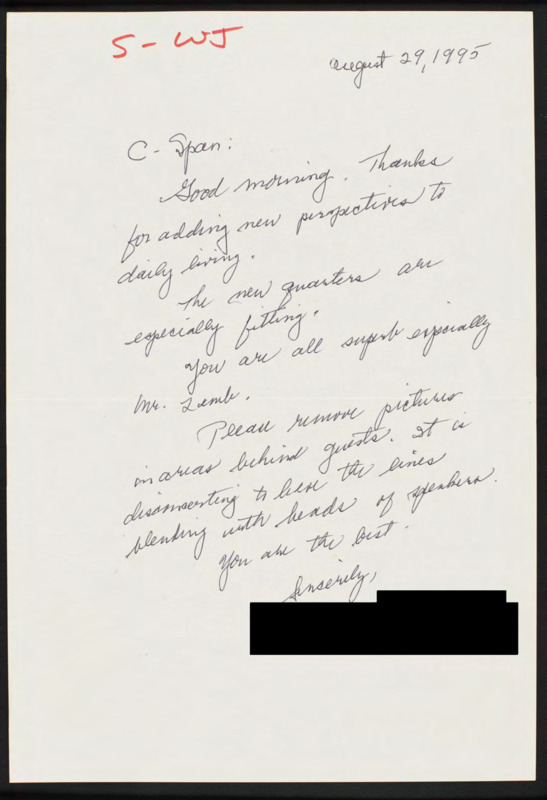 S - WJ
August 29, 1995
C - Span:
Good morning. Thanks
for adding new perspectives to
daily living.
The new quarters are
especially fitting.
You are all superb especially
Mr. Lamb.
Please remove pictures
in areas behind guests. It is
disconserting to have the lines
blending with heads of speakers.
You are the best.
Sincerily,